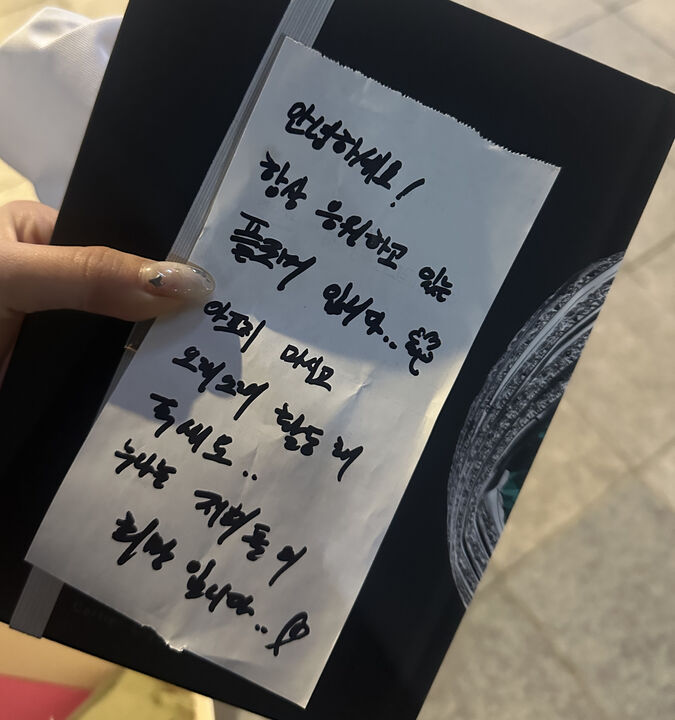 안녕하세요!
항상 응원하고 있는
플로버 입니다..
아프지 마시고
오래오래 활동해
주세요..
누나는 저희들의
희망 입니다..